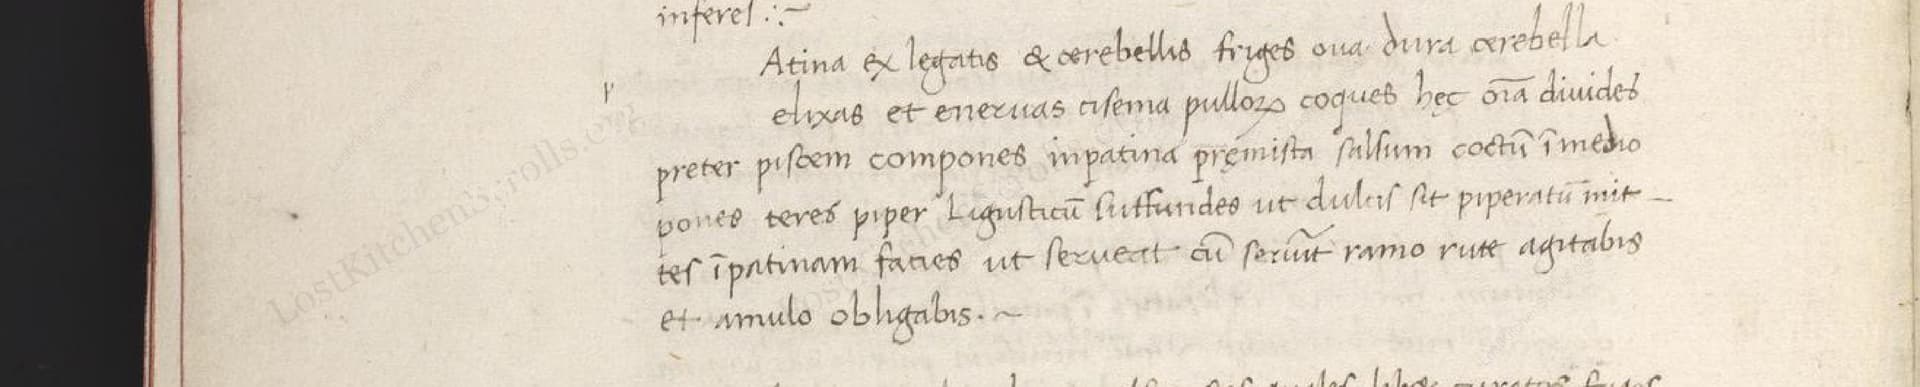 inferes .:~
p
Atina ex legatis & cerebellis friges oua dura cerebella
elixas et eneruas cisema pulloꝝ coques hęc oı̄a diuides
preter piscem compones inpatina pręmista salsum coctū ı̄ medio
pones teres piper Ligusticū suffundes ut dulcis sit piperatū mit –
tes ı̄ patinam facies ut serueat cū seruı̄t ramo rute agitabis
et amulo obligabis . ~